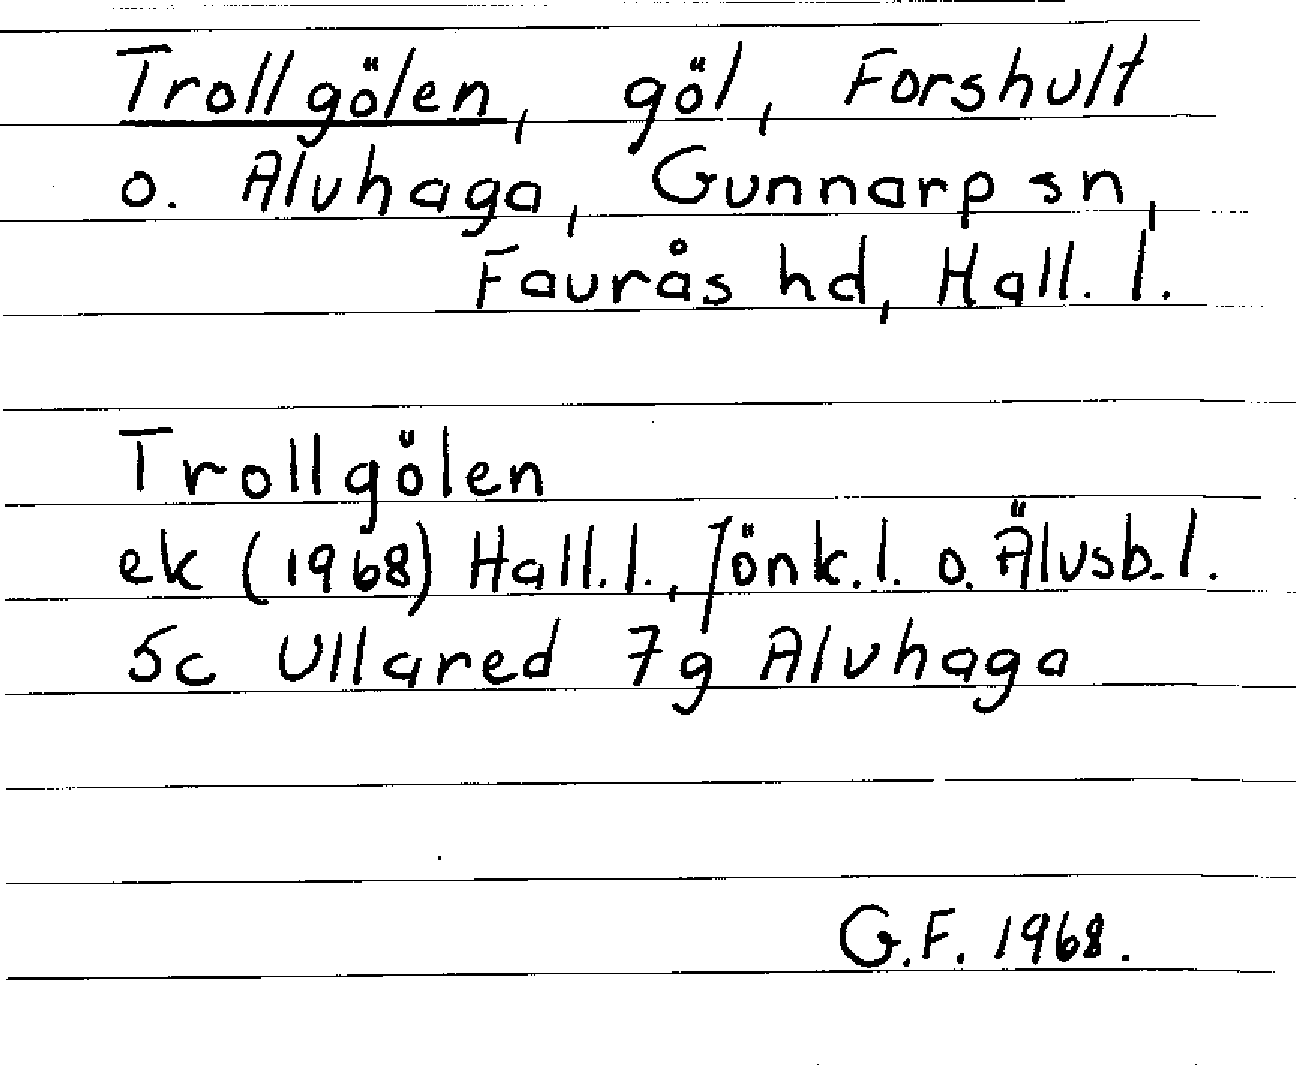 Trollgölen, göl, Forshult
o. Alvhaga, Gunnarp sn,
Faurås hd, Hall. l.
Trollgölen
ek (1968) Hall.l., Jönk.l. o. Älvsb.l.
5c Ullared 7g Alvhaga
G.F. 1968.